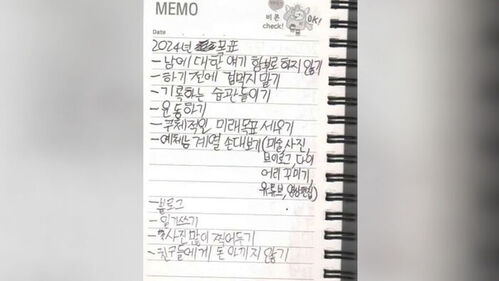 MEMO
비폰
check!
OK!
Date
2024년 목표
- 남에 대한 얘기 함부로 하지 않기
- 하기 전에 겁먹지 말기
- 기록하는 습관들이기
- 운동하기
- 구체적인 미래목표 세우기
- 예체능 계열 손대보기(미술, 사진,
브이로그, 다이
어리 꾸미기,
유튜브, 영상편집)
- 블로그
- 일기쓰기
- 사진 많이 찍어두기
- 친구들에게 돈 아끼지 않기